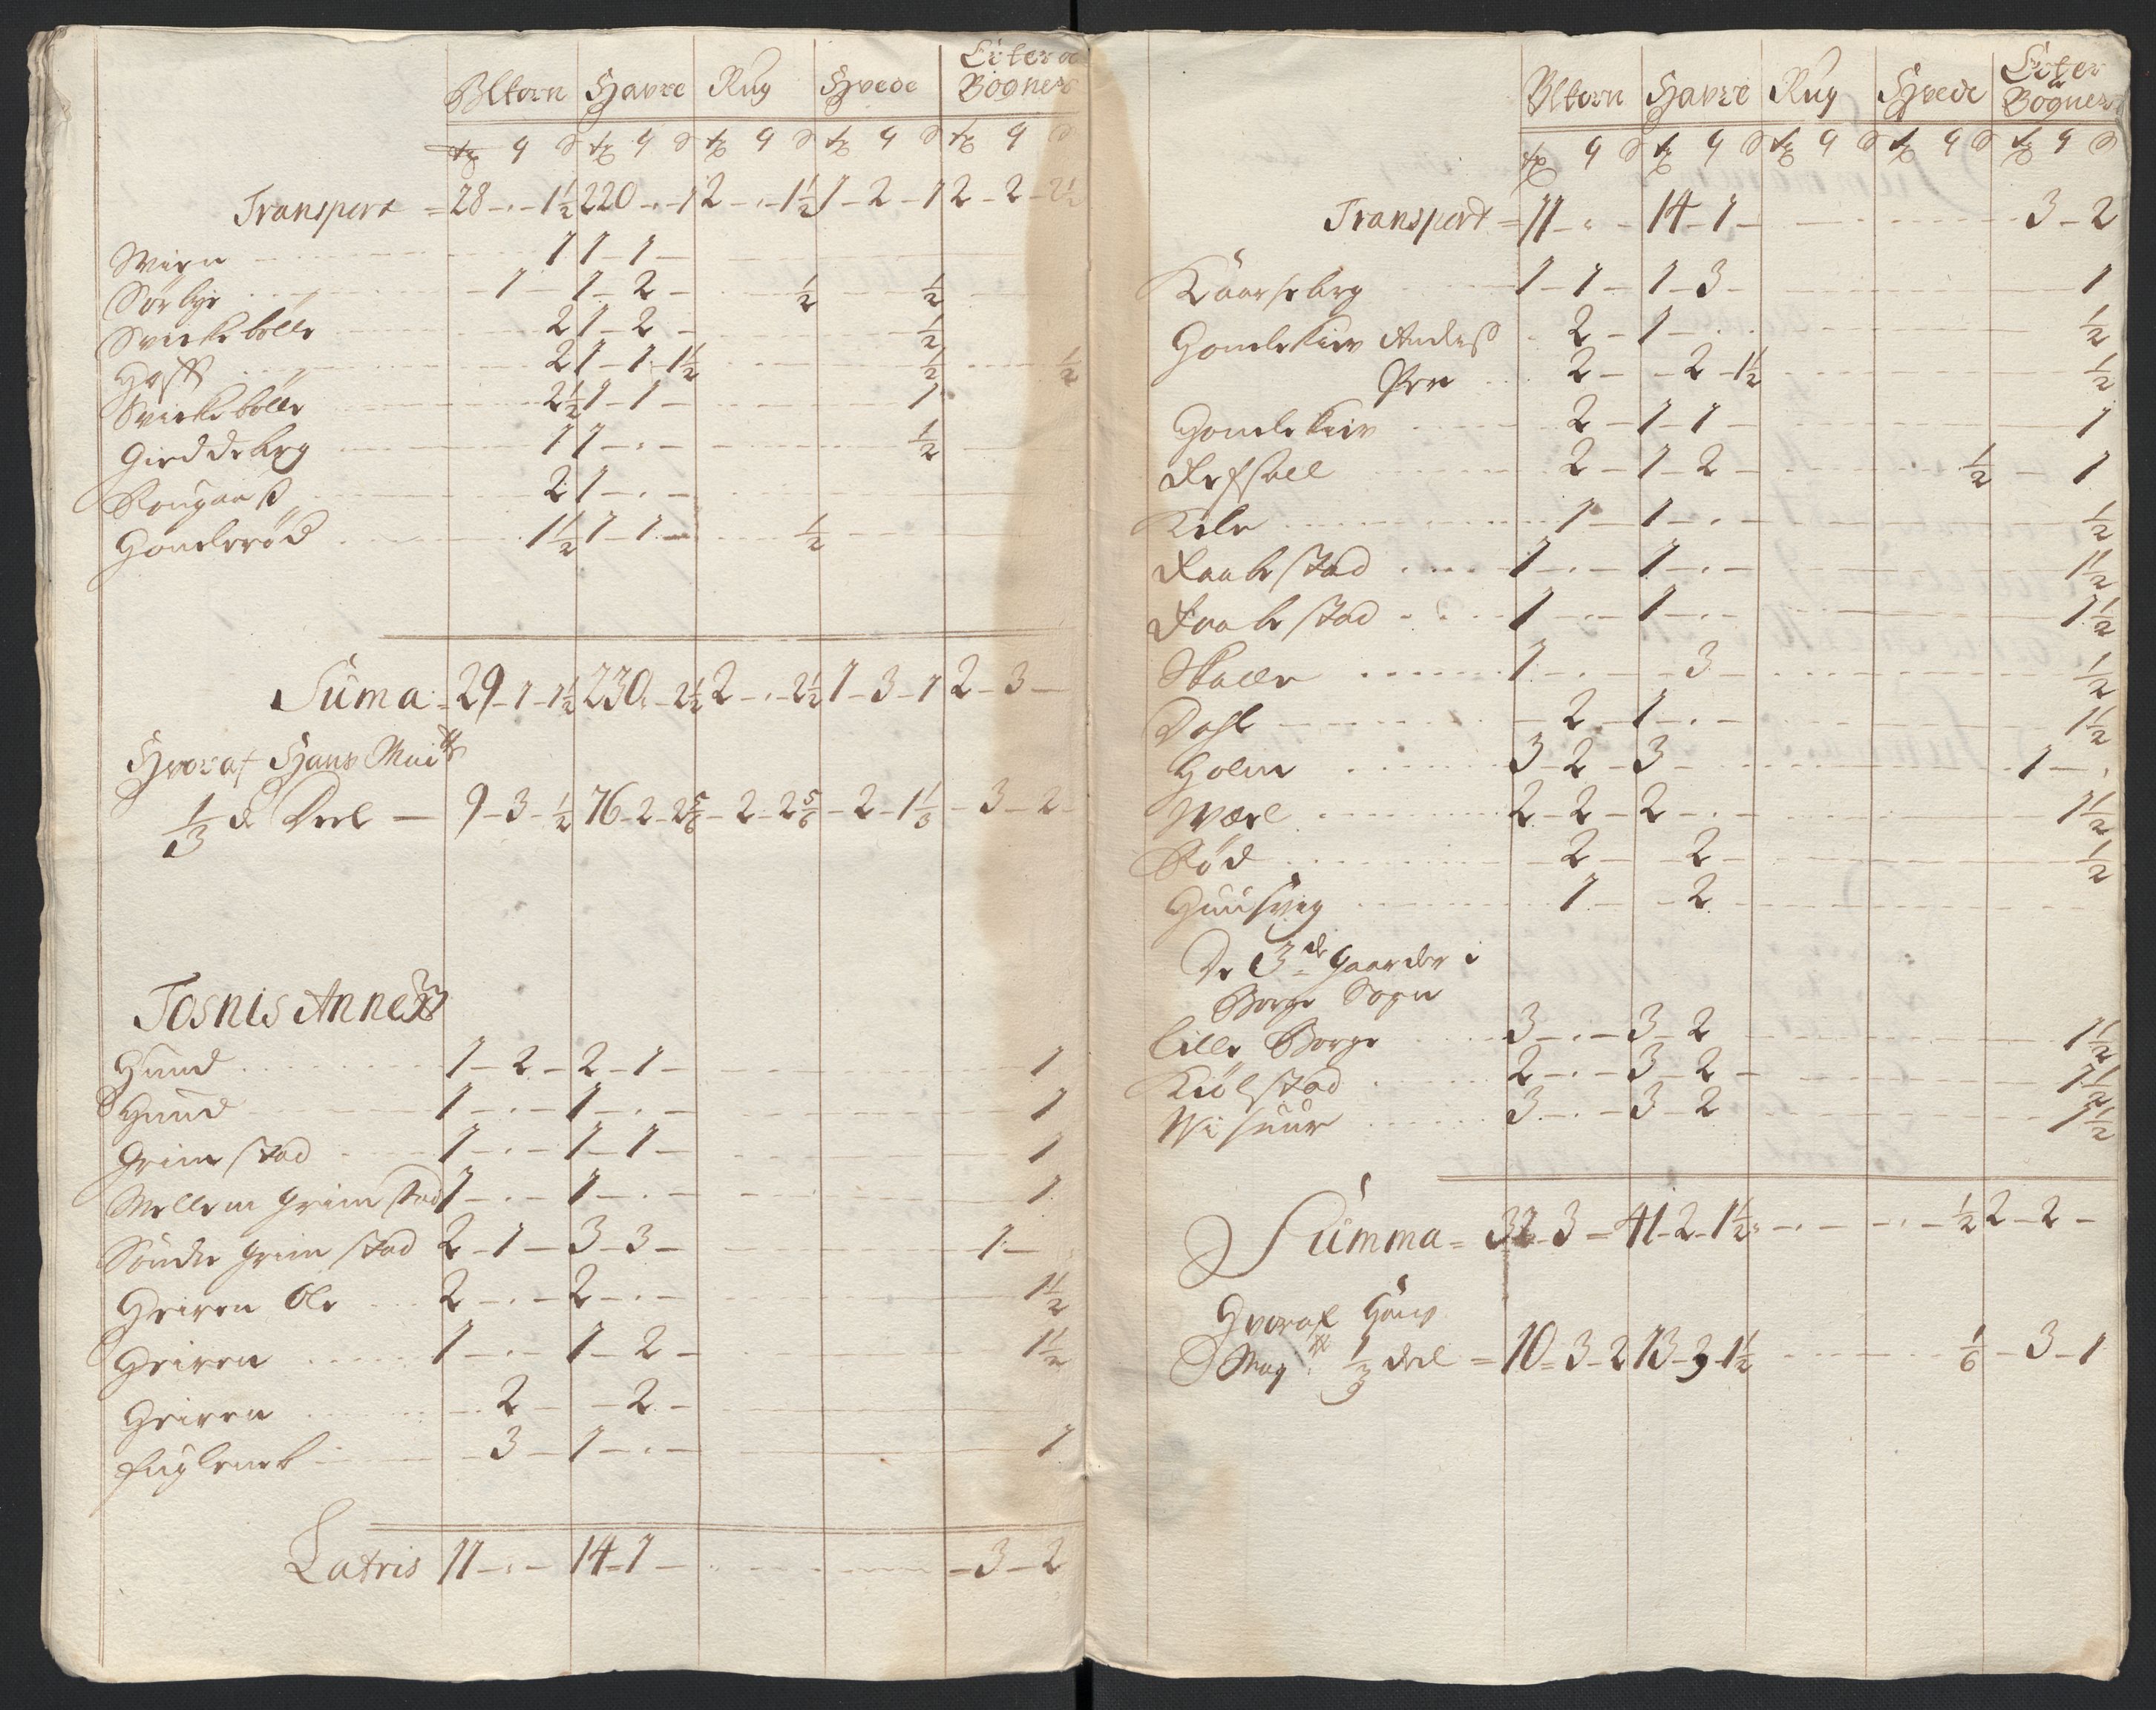 Blkorn Havre Rug Hvede Erter oc Bøgner
tx q d tx q d tx q d tx q d tx q d
Transport = 28 - . - 1½ 220 - . - 1 2 - . - 1½ 1 - 2 - 1 2 - 2 - 2½
Wien 1 1 - 1 -
Sørbye 1 - 1 - 2 - ½ ½
Svirkebølle 2 1 - 2 - ½
Hoff 2 1 - 1 - 1½ ½ ½
Svirkebølle 2½ 1 - 1 - 1
Gieddeberg 1 1 - . - ½
Rougaas 2 1 - . -
Gonderød 1½ 1 - 1 - ½
Suma = 29 - 1 - 1½ 230 - 2½ 2 - . - 2½ 1 - 3 - 1 2 - 3 -
Hvoraf Hans Mait
⅓ d Deel - 9 - 3 - ½ 76 - 2 - 2⅚ - 2 - 2⅚ - 2 - 1⅓ - 3 - 2 -
Tosnis Annex
Hund 1 - 2 - 2 - 1 - 1
Hund 1 - . - 1 - . - 1
Grimstad 1 - . - 1 - 1 - 1
Mellem Grimstad 1 - . - 1 - . - 1
Søndre Grimstad 2 - 1 - 3 - 3 - 1 -
Heiren Ole 2 - . - 2 - . - 1½
Heiren 1 - . - 1 - 2 - 1½
Heiren 2 - - 2 -
Fuglevek 3 - 1 - . - 1
Latris 11 - . - 14 - 1 - - 3 - 2
Blkorn Havre Rug Hvede Erter Bøgner
tx q d tx q d tx q d tx q d tx q d
Transport = 11 - . - 14 - 1 - 3 - 2
Kaarseberg 1 - 1 - 1 - 3 - 1
Gondekier Anders 2 - 1 - . . ½
Per 2 - - 2 - 1½ ½
Gondekier 2 - 1 - 1 - 1
Refsell 2 - 1 - 2 - ½ - 1
Kile 1 - 1 - . - ½
Raabestad 1 - . - 1 - . - 1½
Raabestad 1 - . - 1 - . - 1½
Skalle 1 - . - - 3 - ½
Dahl 2 - 1 - . - 1½
Holm 3 - 2 - 3 - 1 - .
Wærl 2 - 2 - 2 - . - 1½
Rød 2 - - 2 - ½
Huusvig 1 - - 2
De 3de Gaarder i
Borge Sogn
Lille Borge 3 - . - 3 - 2 1½
Kiølstad 2 - . - 3 - 2 - 1½
Wisuur 3 - . - 3 - 2 1½
Summa = 32 - 3 - 41 - 2 - 1½ - . - - . - ½ 2 - 2 -
Hvoraf Hans
May ⅓ deel = 10 - 3 - 2 13 - 3 - 1½ ⅙ - 3 - 1